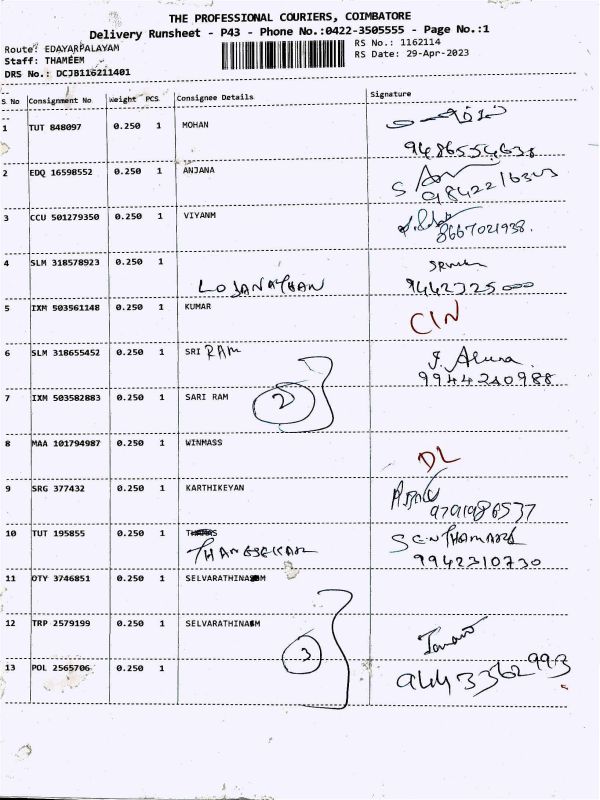 THE PROFESSIONAL COURIERS, COIMBATORE
Delivery Runsheet - P43 - Phone No.:0422-3505555 - Page No.:1
Route: EDAYARPALAYAM
RS No.: 1162114
Staff: THAMEEM
RS Date: 29-Apr-2023
DRS No.: DCJB116211401
S No Consignment No Weight PCS Consignee Details Signature
1 TUT 848097 0.250 1 MOHAN
2 EDQ 16598552 0.250 1 ANJANA
3 CCU 501279350 0.250 1 VIYANM
8667021938.
4 SLM 318578923 0.250 1
LOJANATHAN 9442325000
5 IXM 503561148 0.250 1 KUMAR
CIN
6 SLM 318655452 0.250 1 SRI RAM
9944240988
7 IXM 503582883 0.250 1 SARI RAM
2
8 MAA 101794987 0.250 1 WINMASS
DL
9 SRG 377432 0.250 1 KARTHIKEYAN
9791986537
10 TUT 195855 0.250 1
9942310730
11 OTY 3746851 0.250 1 SELVARATHINAM
12 TRP 2579199 0.250 1 SELVARATHINAM
3
13 POL 2565706 0.250 1
9443362993